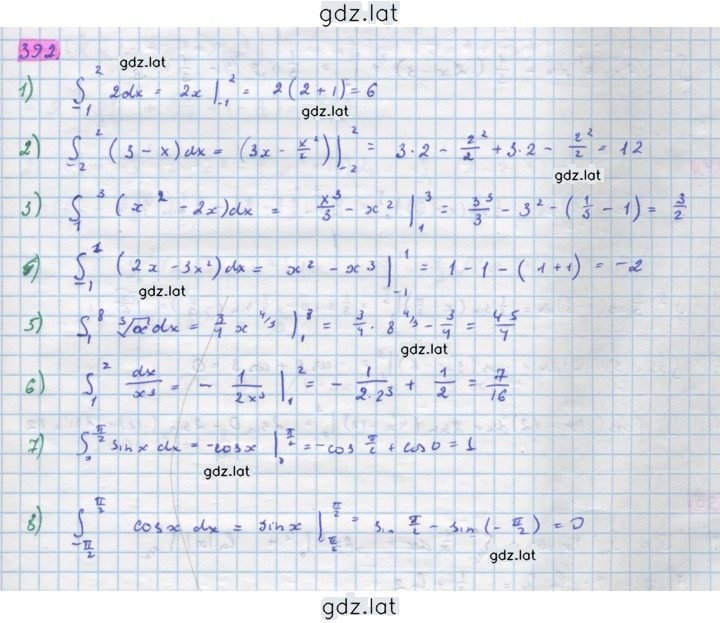 gdz.lat
392.
gdz.lat
1) ∫₋₁² 2dx = 2x |₋₁² = 2(2+1) = 6
gdz.lat
2) ∫₋₂² (3 - x)dx = (3x - x²/2) |₋₂² = 3·2 - 2²/2 + 3·2 - 2²/2 = 12
gdz.lat
3) ∫₁³ (x² - 2x)dx = x³/3 - x² |₁³ = 3³/3 - 3² - (1/3 - 1) = 3/2
∫₋₁¹ (2x - 3x²)dx = x² - x³ |₋₁¹ = 1 - 1 - (1+1) = -2
gdz.lat
5) ∫₁⁸ ∛x dx = 3/4 x^4/3 |₁⁸ = 3/4 · 8^4/3 - 3/4 = 45/4
gdz.lat
6) ∫₁² dx/x³ = - 1/2x³ |₁² = - 1/2·2³ + 1/2 = 7/16
7) ∫₀^π/2 sinx dx = -cosx |₀^π/2 = -cos π/2 + cos0 = 1
gdz.lat
8) ∫₋π/2^π/2 cosx dx = sinx |₋π/2^π/2 = sin π/2 - sin(-π/2) = 0
gdz.lat